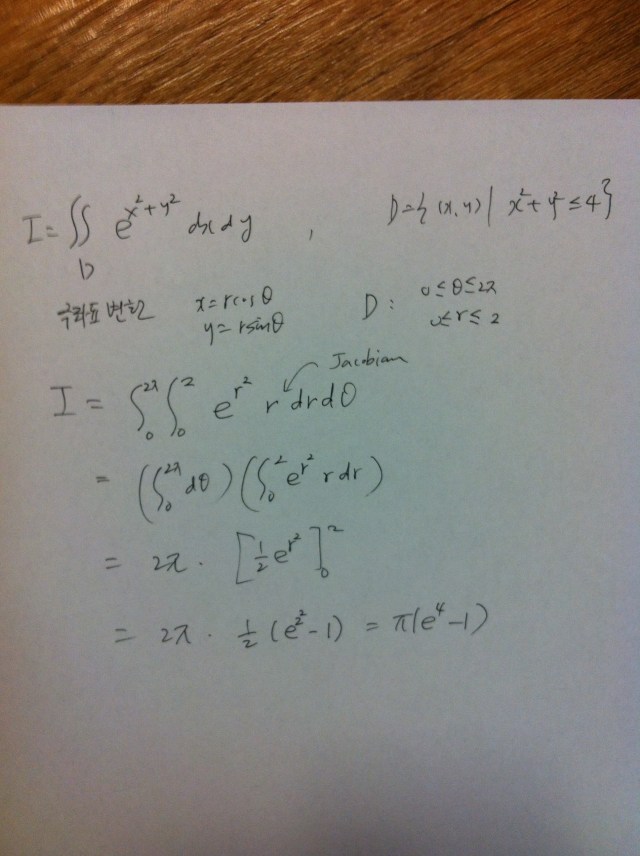 I = ∬_D e^{x²+y²} dx dy , D = { (x, y) | x²+y² ≤ 4 }
극좌표 변환 x = r cos θ D : 0 ≤ θ ≤ 2π
y = r sin θ 0 ≤ r ≤ 2
Jacobian
I = ∫₀^{2π} ∫₀² e^{r²} r dr dθ
= (∫₀^{2π} dθ) (∫₀² e^{r²} r dr)
= 2π · [½ e^{r²}]₀²
= 2π · ½ (e^{2²} - 1) = π(e⁴ - 1)